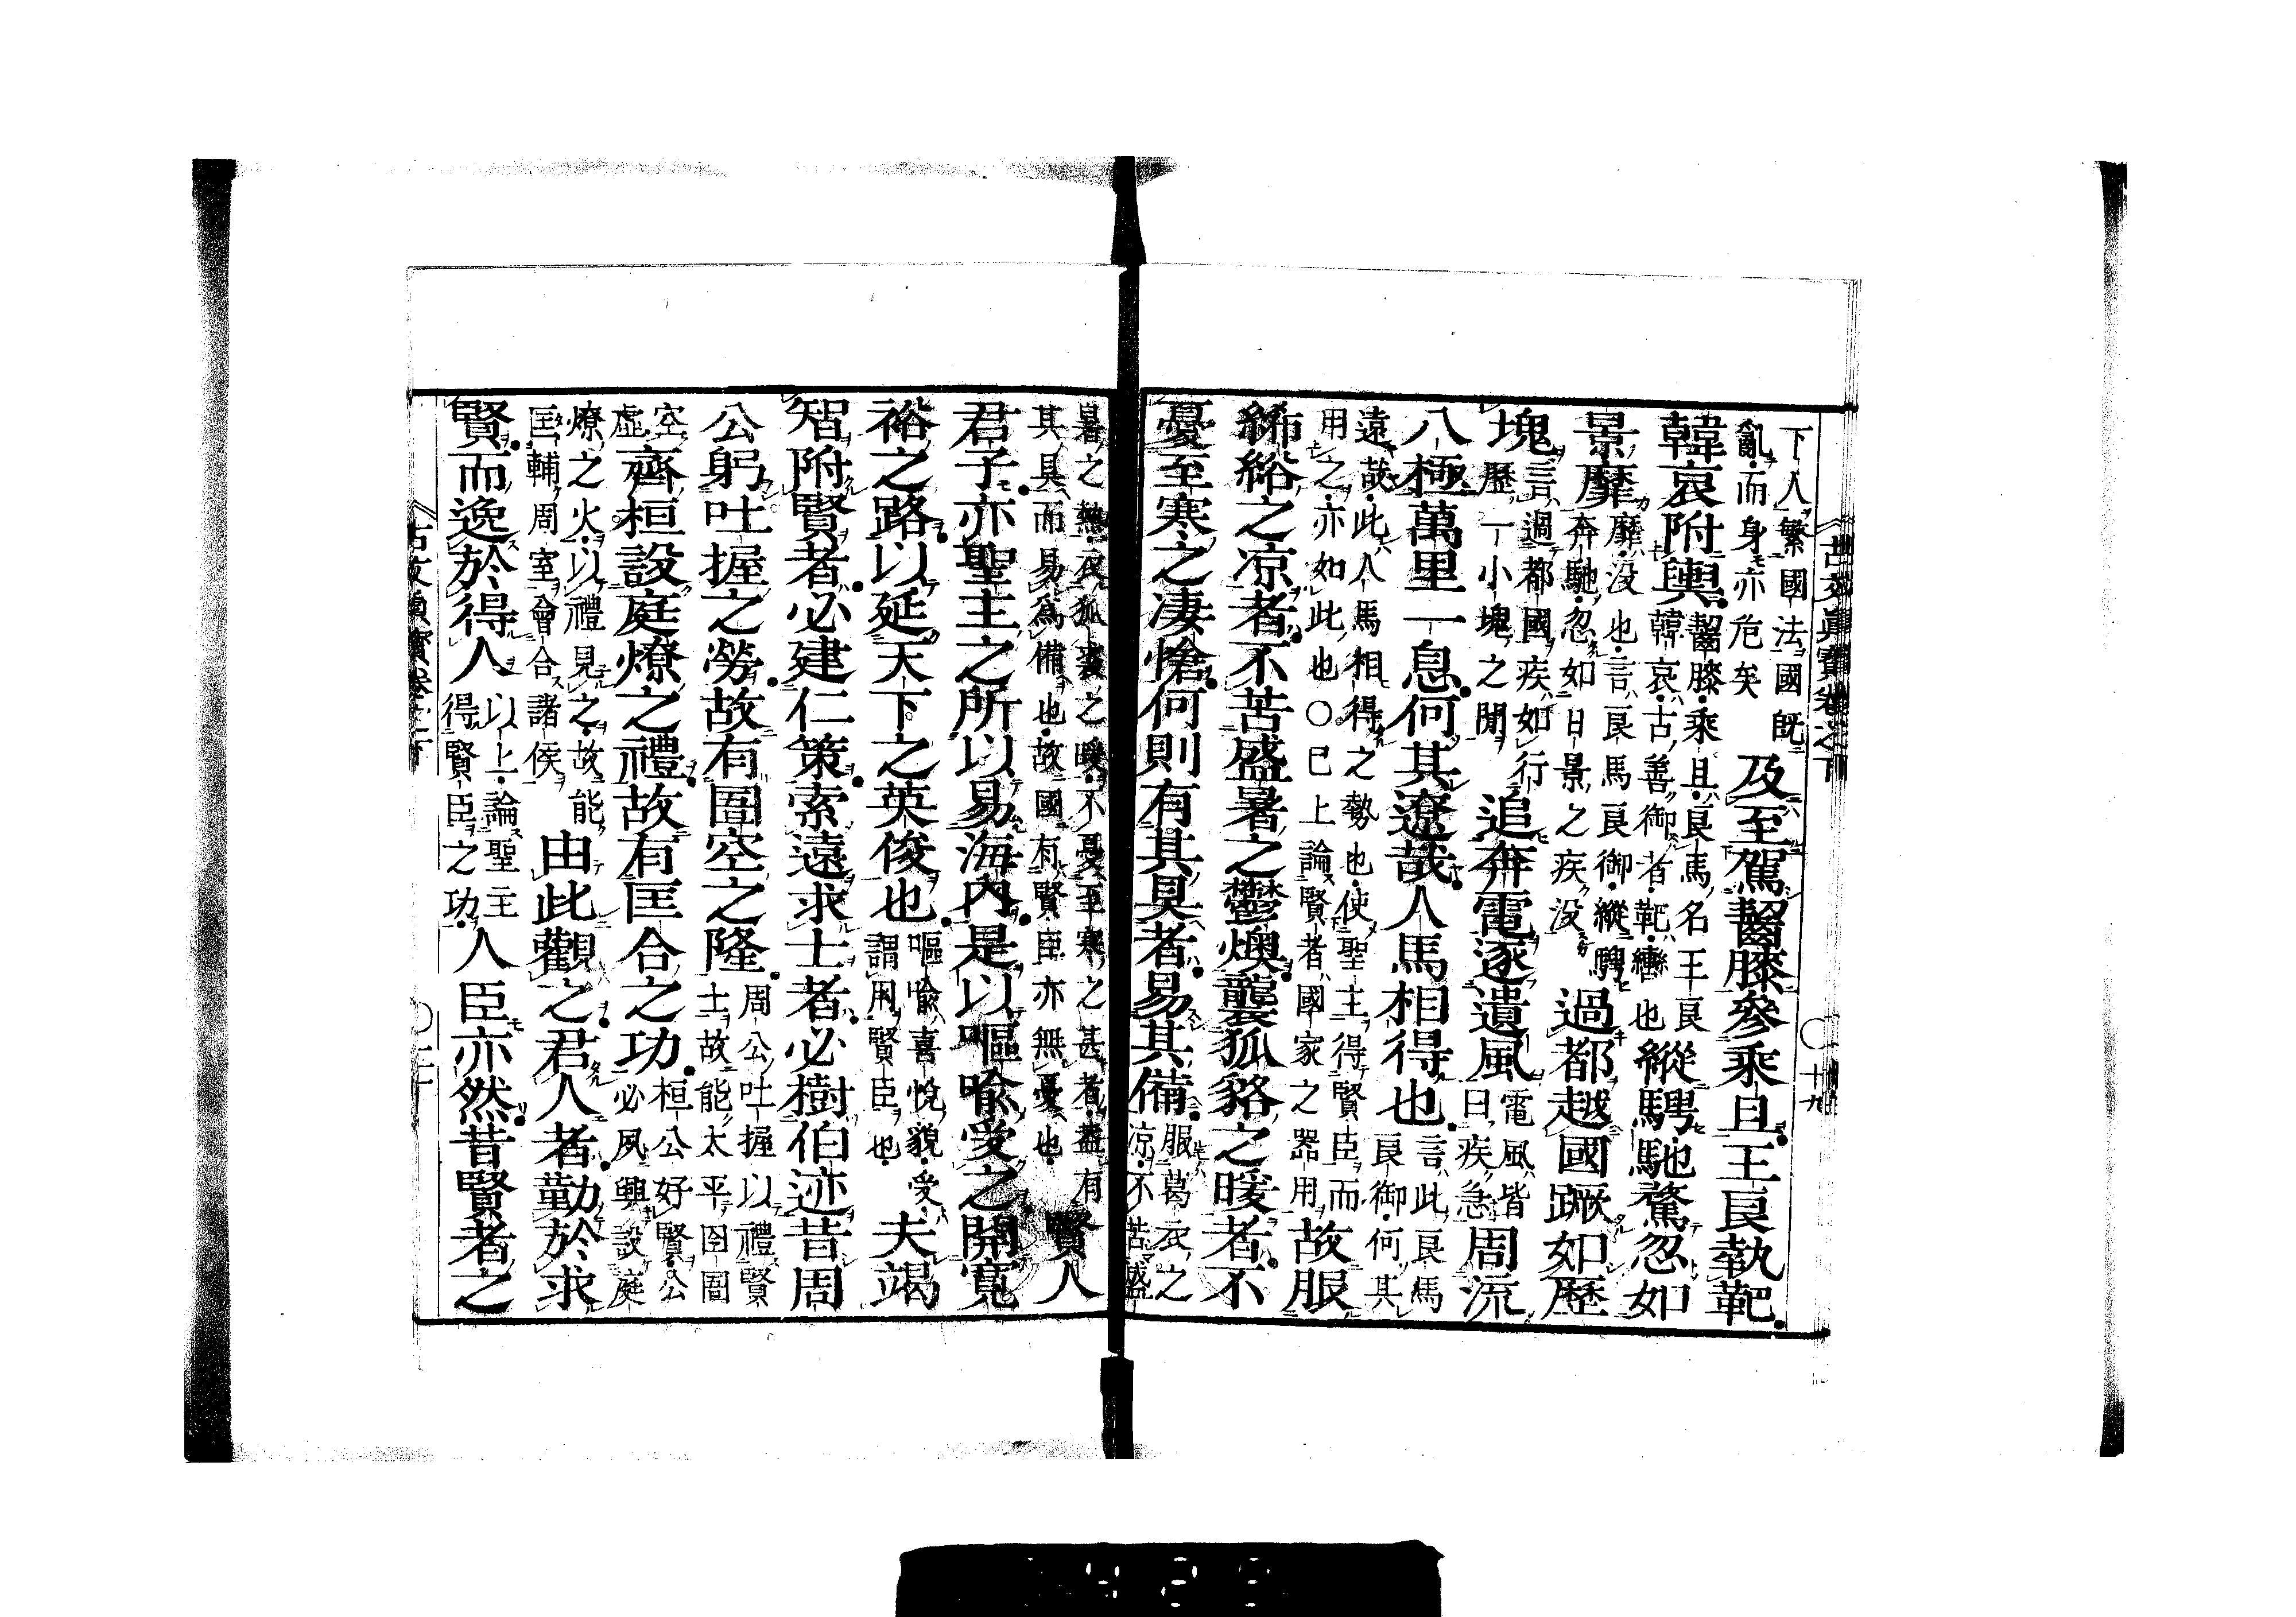 古文眞寳卷之下 〇十九
下人繁國法國既
亂而身亦危矣
及至駕齧膝參乘且王良執靶
韓哀附輿
齧膝乘且良馬名王良
韓哀古善御者靶轡也
縱騁馳騖忽如
景靡
靡没也言良馬良御縱騁
奔馳忽如日景之疾没
過都越國蹶如歷
塊
言過都國疾如行
歷一小塊之間
追奔電逐遺風
電風皆
曰疾急
周流
八極萬里一息何其遼哉人馬相得也
言此良馬
良御何其
遠哉此人馬相得之勢也使聖主得賢臣而
用之亦如此也〇已上論賢者國家之器用
故服
絺綌之凉者不苦盛暑之鬱燠襲狐貉之暖者不
憂至寒之凄愴何則有其具者易其備
服葛衣之
凉不苦盛
暑之熱衣狐裘之暖不憂至寒之甚者蓋有
其具而易爲備也故國有賢臣亦無憂也
賢人
君子亦聖主之所以易海内是以嘔喩受之開寬
裕之路以延天下之英俊也
嘔喩喜悅貌受
謂用賢臣也
夫竭
智附賢者必建仁策索遠求士者必樹伯迹昔周
公躬吐握之勞故有圄空之隆
周公吐握以禮賢
士故能太平囹圄
空
虛
齊桓設庭燎之禮故有匡合之功
桓公好賢公
必夙興設庭
燎之火以禮見之故能
匡輔周室會合諸侯
由此觀之君人者勤於求
賢而逸於得人
以上論聖主
得賢臣之功
人臣亦然昔賢者之
古文眞寳卷之下 〇二十